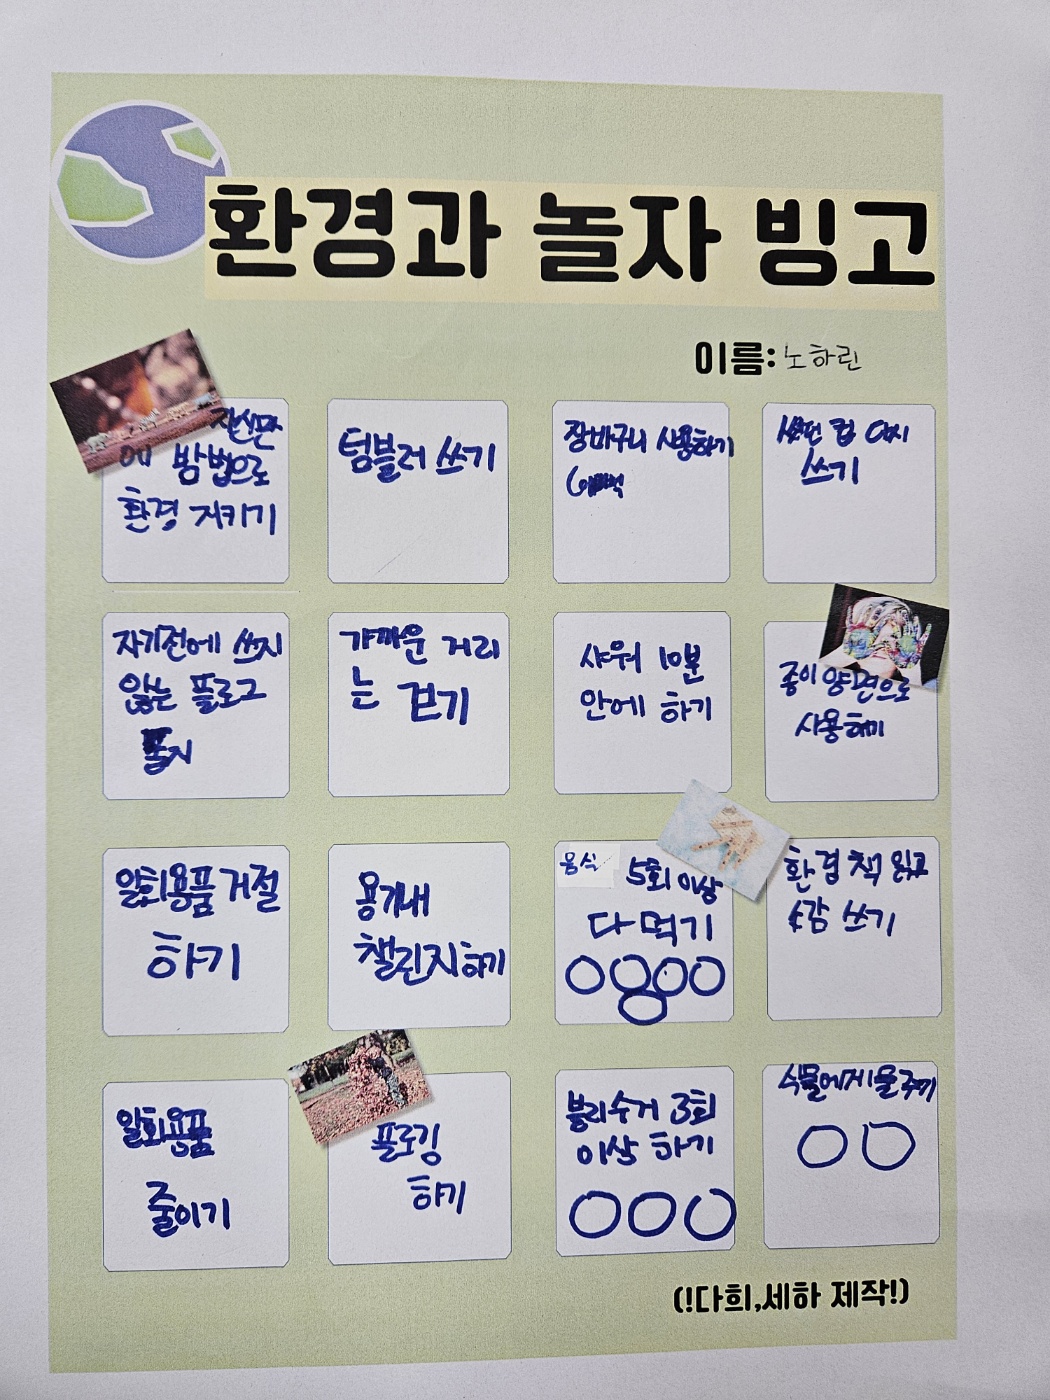 환경과 놀자 빙고
이름: 노하린
자신만
에 방법으로
환경 지키기
텀블러 쓰기
장바구니 사용하기
쓰던 컵 다시
쓰기
자기전에 쓰지
않는 플로그
뽑기
가까운 거리
는 걷기
샤워 10분
안에 하기
종이 양면으로
사용하기
일회용품 거절
하기
용기내
챌린지하기
음식
5회 이상
다 먹기
환경 책 읽고
소감 쓰기
일회용품
줄이기
플로깅
하기
분리수거 3회
이상 하기
식물에게 물주기
(!다희,세하 제작!)